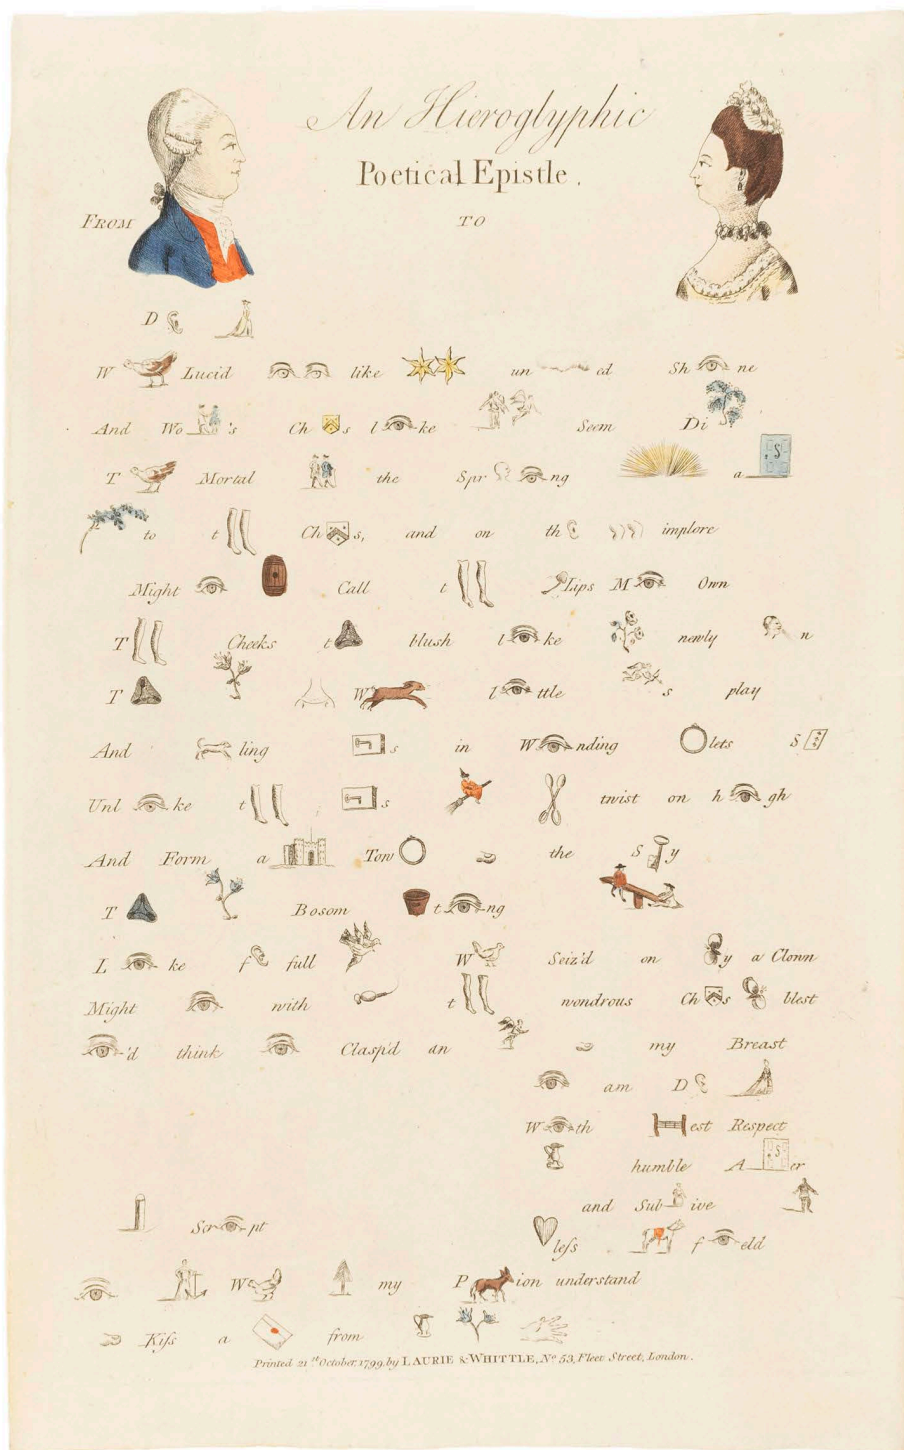 An Hieroglyphic
Poetical Epistle.
FROM TO
D
W Lucid like un ed Sh ne
And Wo 's Ch s l ke Seem Di
T Mortal the Spr ng a S
to t Ch s, and on th implore
Might Call t Lips M Own
T Cheeks t blush l ke newly n
T W l ttle s play
And ling s in W nding lets S
Unl ke t s twist on h gh
And Form a Tow the S y
T Bosom t ng
L ke f full W Seiz'd on y a Clown
Might with t wondrous Ch s blest
'd think Clasp'd an my Breast
am D
W th est Respect
humble A S er
and Sub ive
Scr pt
leſs f eld
W my P ion understand
Kiſs a from
Printed 21st October, 1799, by LAURIE & WHITTLE, No 53, Fleet Street, London.